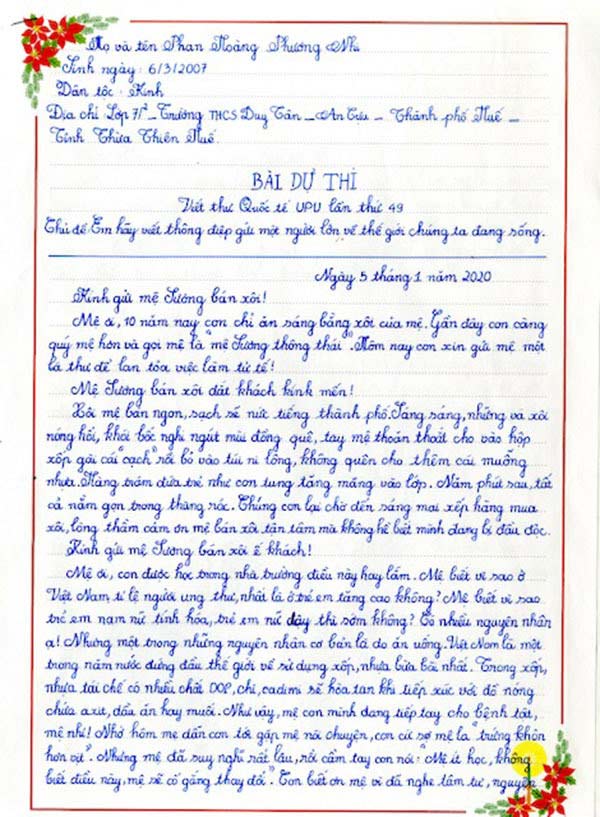 Họ và tên Phan Hoàng Phương Nhi
Sinh ngày: 6/3/2007
Dân tộc: Kinh
Địa chỉ Lớp 7/1 - Trường THCS Duy Tân - An Cựu - Thành phố Huế -
Tỉnh Thừa Thiên Huế
BÀI DỰ THI
Viết thư Quốc tế UPU lần thứ 49
Chủ đề: Em hãy viết thông điệp gửi một người lớn về thế giới chúng ta đang sống.
Ngày 5 tháng 1 năm 2020
Kính gửi mệ Sương bán xôi!
Mệ ơi, 10 năm nay con chỉ ăn sáng bằng xôi của mệ. Gần đây con càng
quý mệ hơn và gọi mệ là "mệ Sương thông thái". Hôm nay con xin gửi mệ một
lá thư để lan tỏa việc làm tử tế!
Mệ Sương bán xôi đắt khách kính mến!
Xôi mệ bán ngon, sạch sẽ nức tiếng thành phố. Sáng sáng, những vá xôi
nóng hổi, khói bốc nghi ngút mùi đồng quê, tay mệ thoăn thoắt cho vào hộp
xốp gài cái "cạch" rồi bỏ vào túi ni lông, không quên cho thêm cái muỗng
nhựa. Hàng trăm đứa trẻ như con tung tăng mang vào lớp. Năm phút sau, tất
cả nằm gọn trong thùng rác. Chúng con lại chờ đến sáng mai xếp hàng mua
xôi, lòng thầm cảm ơn mệ bán xôi tận tâm mà không hề biết mình đang bị đầu độc.
Kính gửi mệ Sương bán xôi ế khách!
Mệ ơi, con được học trong nhà trường điều này hay lắm. Mệ biết vì sao ở
Việt Nam, tỉ lệ người ung thư, nhất là ở trẻ em tăng cao không? Mệ biết vì sao
trẻ em nam nữ tính hóa, trẻ em nữ dậy thì sớm không? Có nhiều nguyên nhân
ạ! Nhưng một trong những nguyên nhân cơ bản là do ăn uống. Việt Nam là một
trong năm nước đứng đầu thế giới về sử dụng xốp, nhựa bừa bãi nhất. Trong xốp,
nhựa tái chế có nhiều chất DOP, chì, cadimi sẽ hòa tan khi tiếp xúc với đồ nóng
chứa axit, dầu ăn hay muối. Như vậy, mệ con mình đang tiếp tay cho bệnh tật,
mệ nhỉ! Nhớ hôm mẹ dẫn con tới gặp mệ nói chuyện, con cứ sợ mệ la "trứng khôn
hơn vịt". Nhưng mệ đã suy nghĩ rất lâu, rồi cầm tay con nói: "Mệ ít học, không
biết điều này, mệ sẽ cố gắng thay đổi". Con biết ơn mệ vì đã nghe tâm tư, nguyện